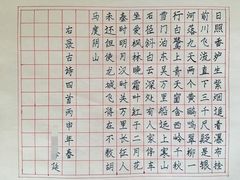 日照香炉生紫烟遥看瀑布挂
前川飞流直下三千尺疑是银
河落九天两个黄鹂鸣翠柳一
行白鹭上青天窗含西岭千秋
雪门泊东吴万里船远上寒山
石径斜白云深处有人家停车
坐爱枫林晚霜叶红于二月花
秦时明月汉时关万里长征人
未还但使龙城飞将在不教胡
马度阴山
右录古诗四首丙申年春